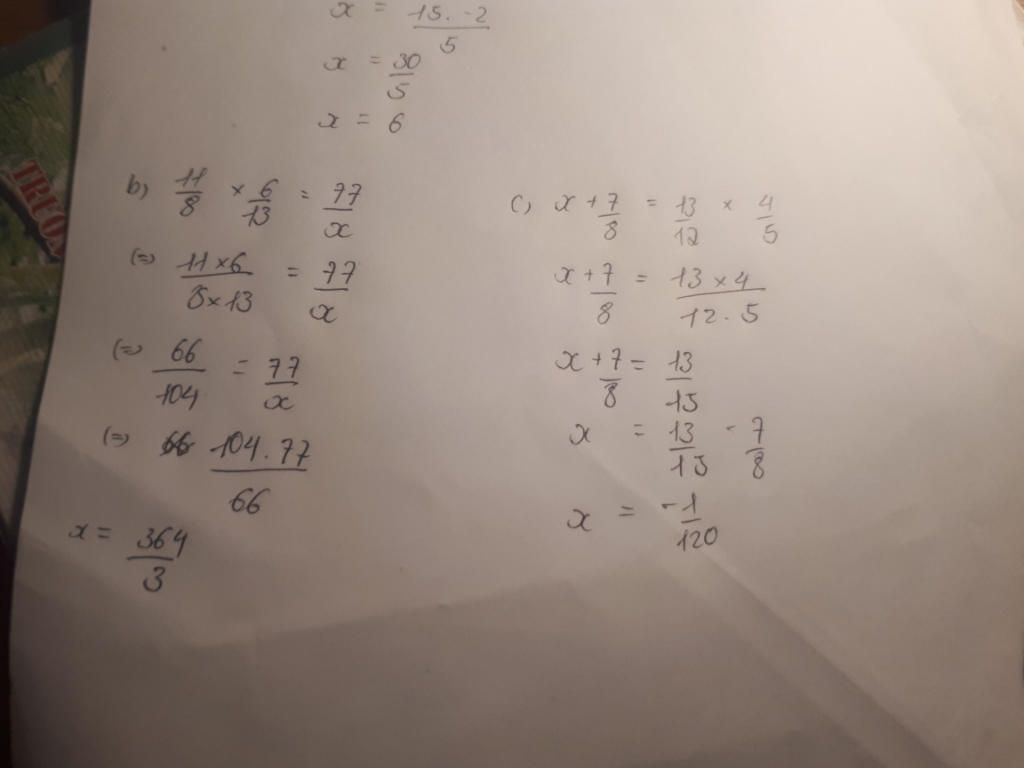 x = 15. -2 / 5
x = 30 / 5
x = 6
b) 11/8 × 6/13 = 77/x
(=) 11×6 / 8×13 = 77/x
(=) 66/104 = 77/x
(=) 104.77 / 66
x = 364/3
c) x + 7/8 = 13/12 × 4/5
x + 7/8 = 13×4 / 12.5
x + 7/8 = 13/15
x = 13/15 - 7/8
x = -1/120
TRUFO